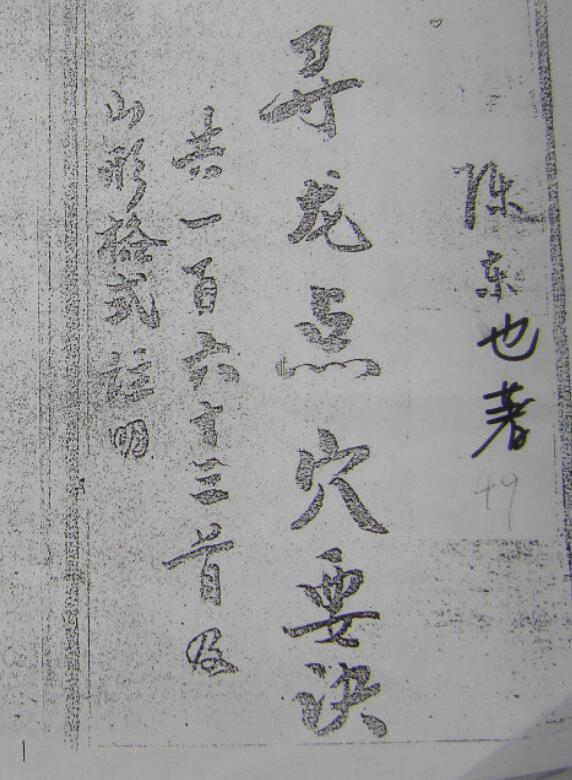 陈东也著
49
寻龙点穴要决
共一百六十三首及
山形格式註明